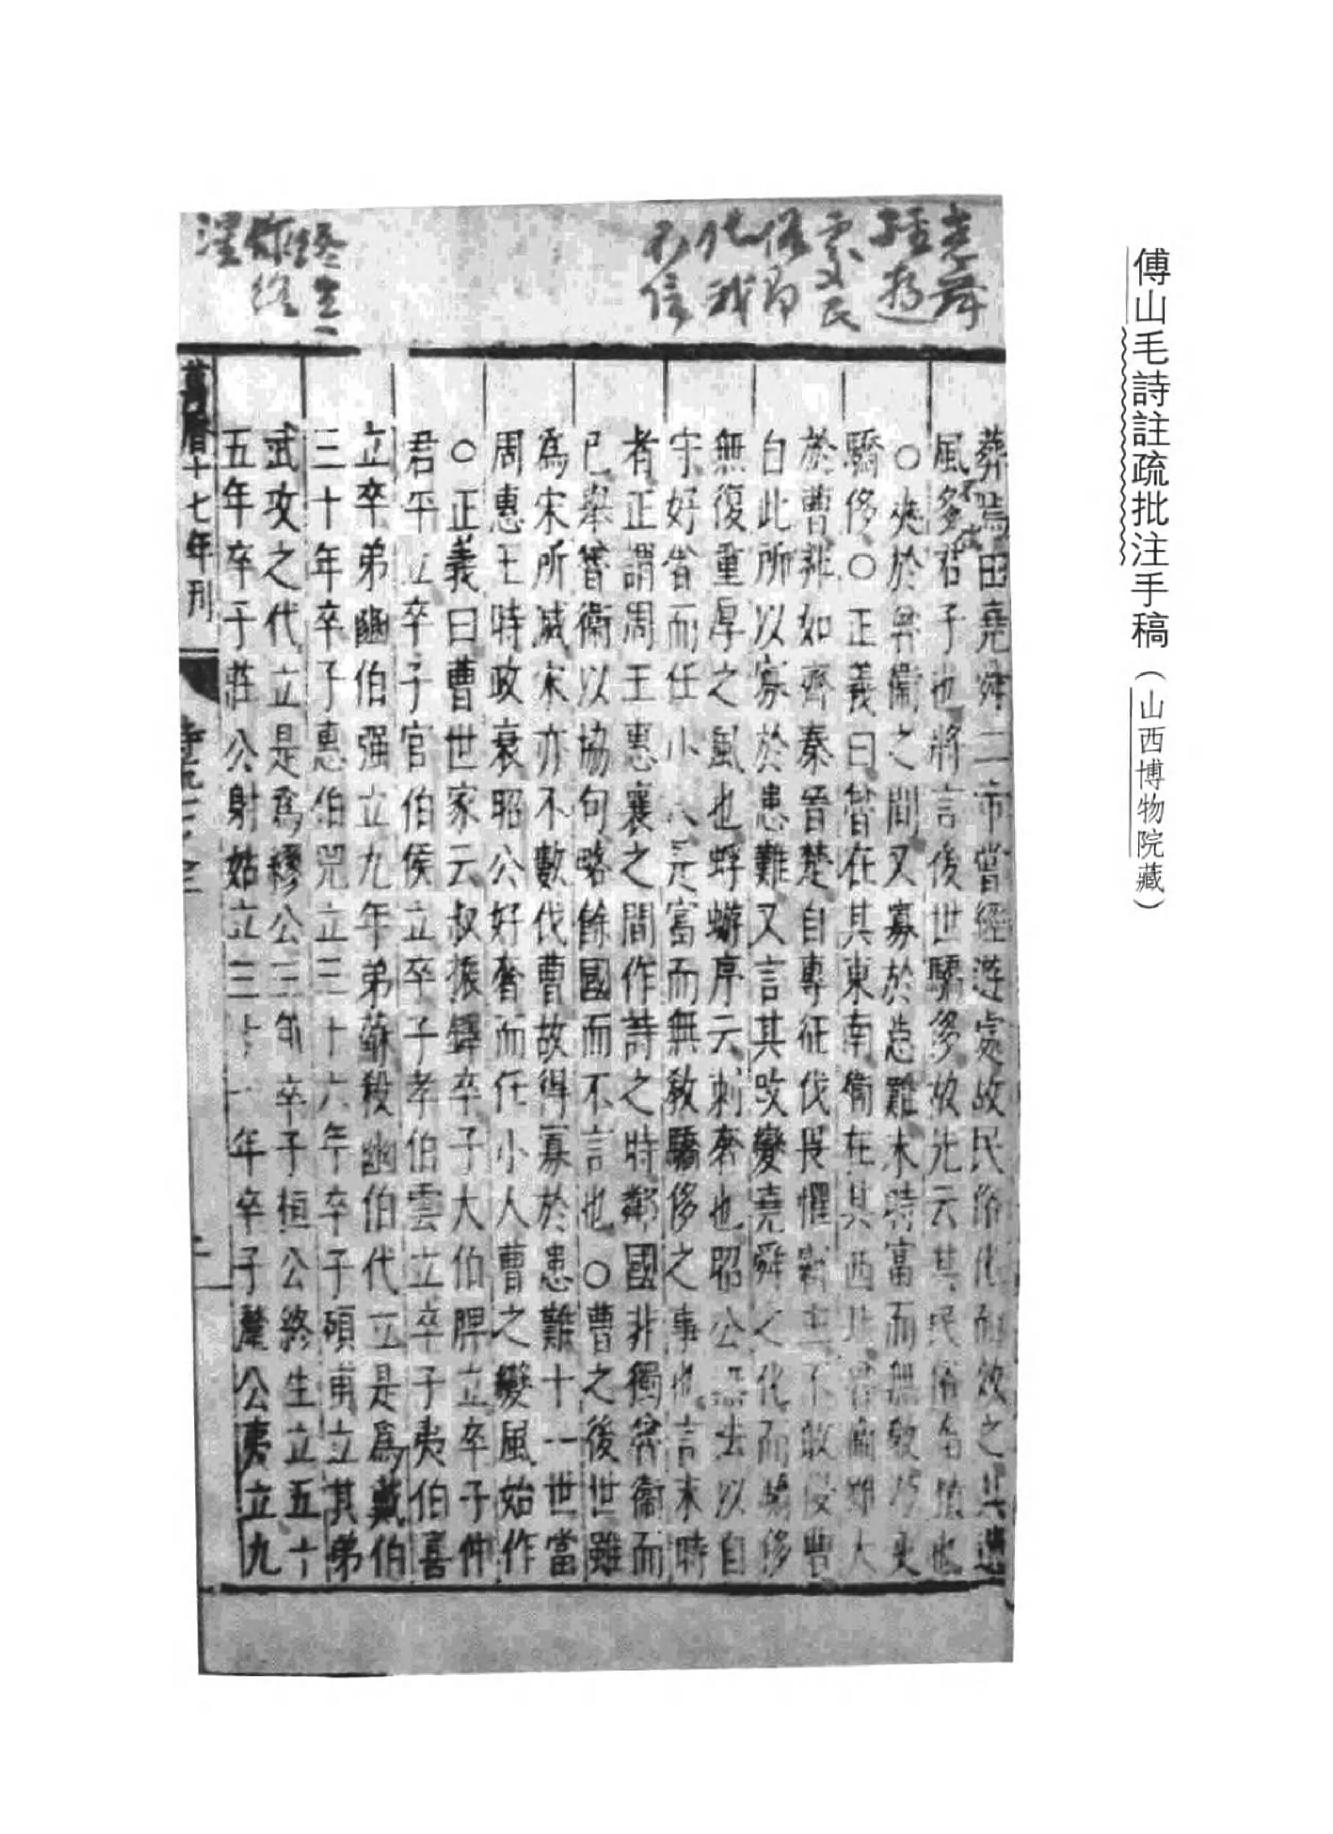 傅山毛詩註疏批注手稿（山西博物院藏）
堯舜
經遊
處又民
俗即
化我
不信
終生一
作終
湦
葬焉由堯舜二帝嘗經遊處故民俗化而效之其遺
風多君子也將言後世驕侈故先云其民俗之也
○夾於魯衛之間又寡於患難末時富而無教乃更
驕侈○正義曰魯在其東南衛在其西北魯衛大
於曹非如齊秦晉楚自專征伐畏懼不敢侵曹
自此所以寡於患難又言其改變堯舜之化而驕侈
無復重厚之風也蜉蝣序云刺奢也昭公無法以自
守好奢而任小人是富而無教驕侈之事也言末時
者正謂周王惠襄之間作詩之時鄰國非獨魯衛而
已舉魯衛以協句略餘國而不言也○曹之後世雖
爲宋所滅宋亦不數伐曹故得寡於患難十一世當
周惠王時政衰昭公好奢而任小人曹之變風始作
○正義曰曹世家云叔振鐸卒子大伯脾立卒子仲
君平立卒子官伯侯立卒子孝伯雲立卒子夷伯喜
立卒弟幽伯强立九年弟蘇殺幽伯代立是爲戴伯
三十年卒子惠伯兕立三十六年卒子碩甫立其弟
武攻之代立是爲繆公三年卒子桓公終生立五十
五年卒子莊公射姑立三十一年卒子釐公夷立九
萬曆十七年刊